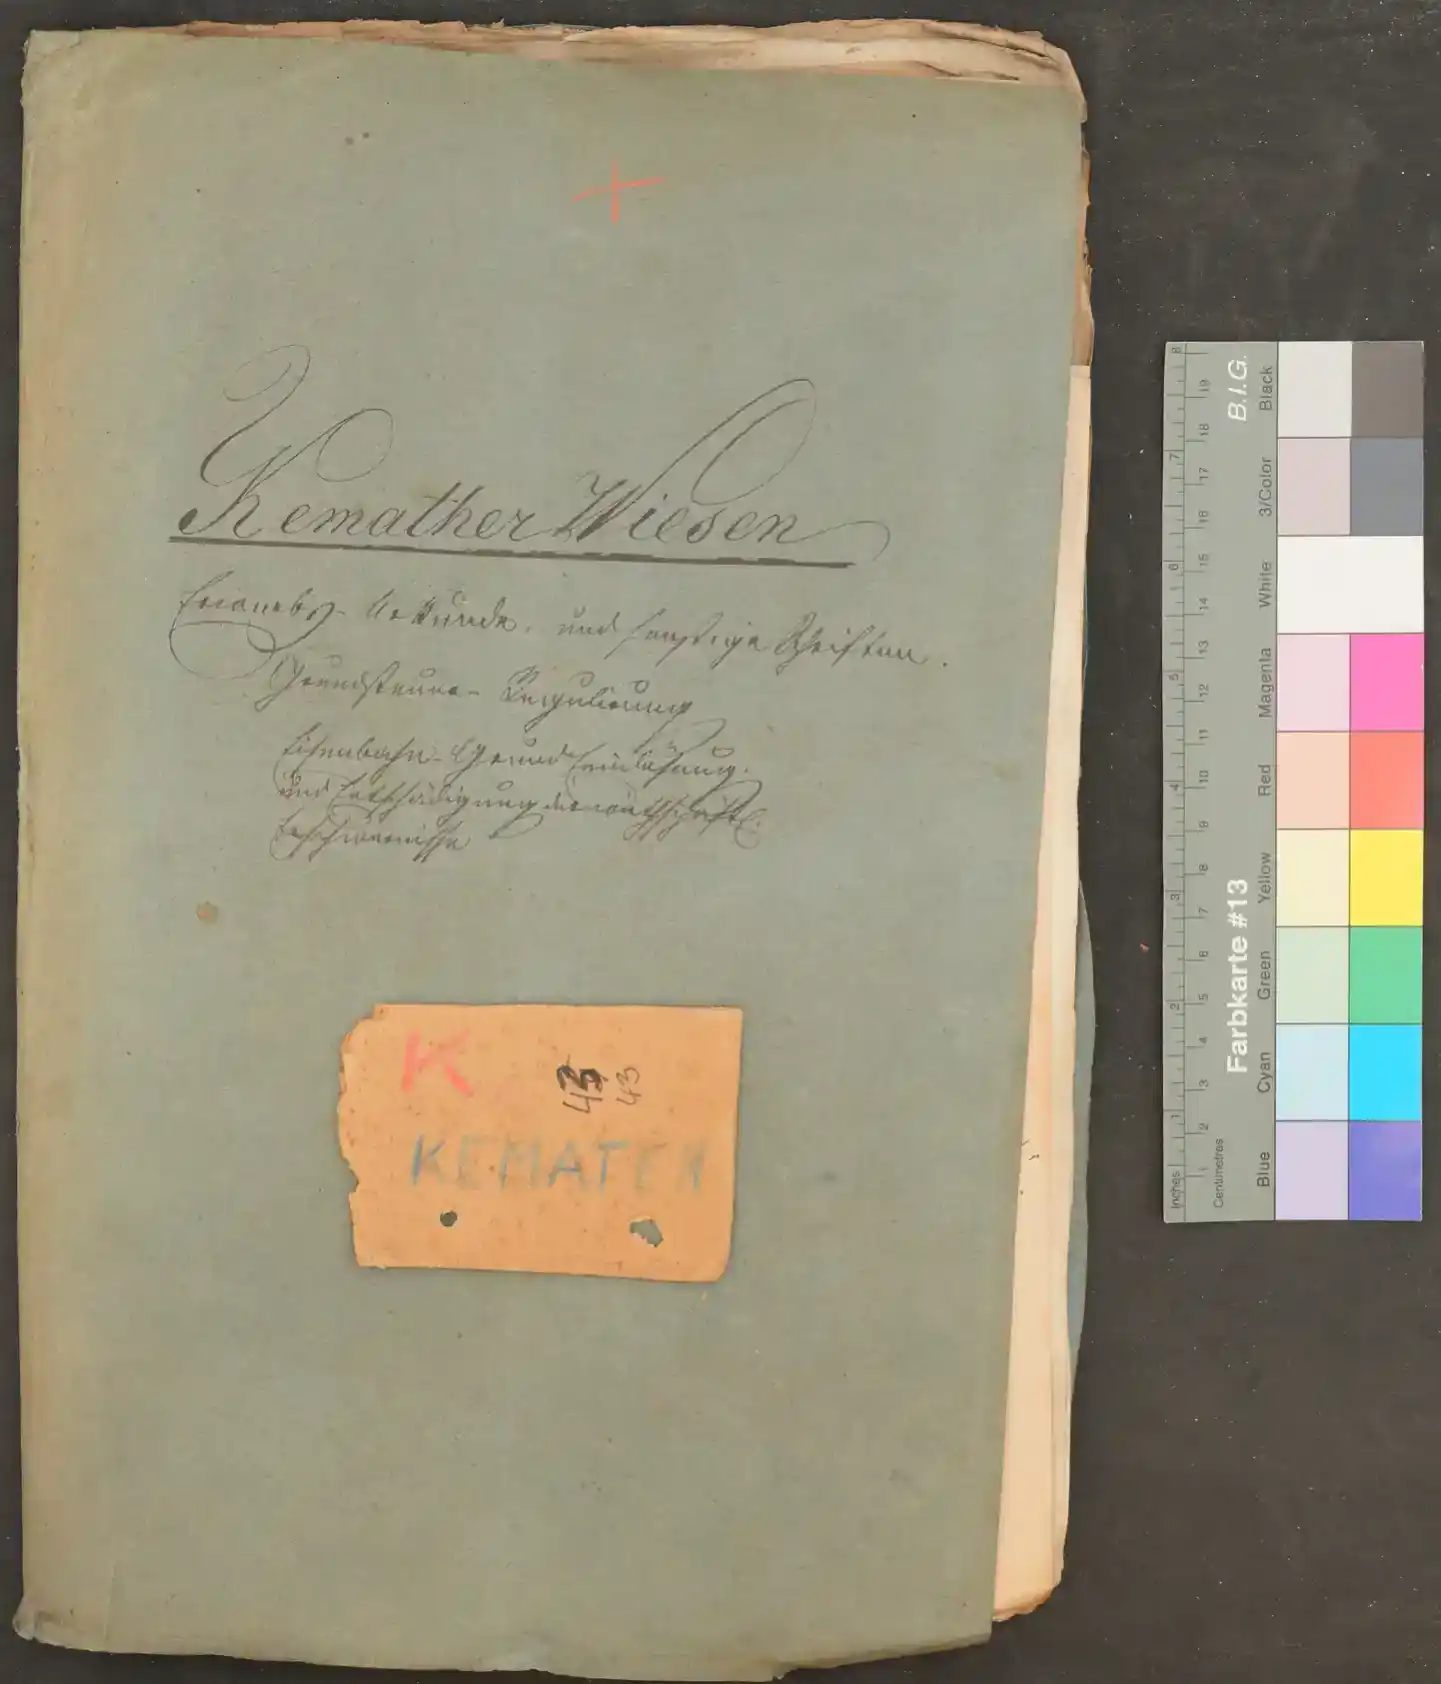 Kemather Wiesen
Erwerbs-Urkunde, und sonstige Schriften.
Grundsteuer-Regulirung
Eisenbahn-Grund Einlösung.
und Entschädigung der wirthschaftl.
Erschwernisse
K
43
43
KEMATEN
B.I.G.
Farbkarte #13
Black
3/Color
White
Magenta
Red
Yellow
Green
Cyan
Blue
Inches
1 2 3 4 5 6 7 8
Centimetres
2 3 4 5 6 7 8 9 10 11 12 13 14 15 16 17 18 19